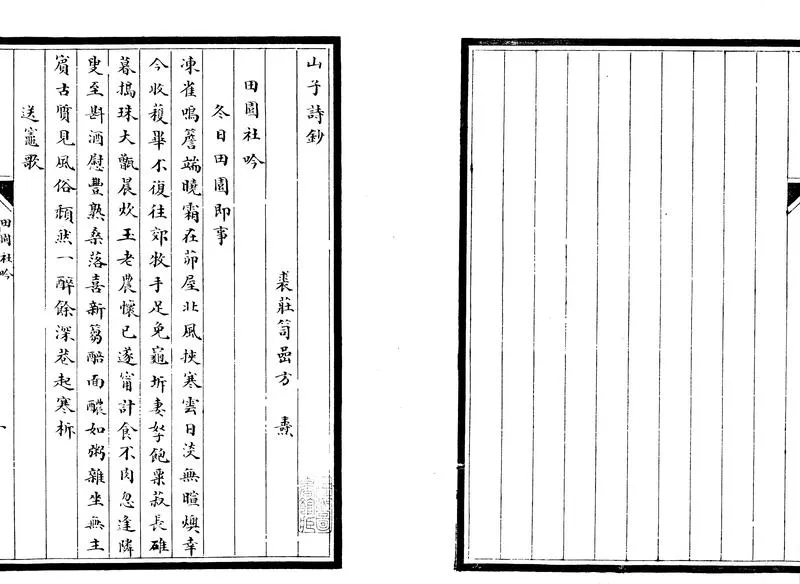 山子詩鈔
裘莊笥嵒方 燾
田園社吟
冬日田園即事
凍雀鳴簷端曉霜在茆屋北風挾寒雲日淡無暄燠幸
今收穫畢不復往郊牧手足免龜坼妻孥飽粟菽長碓
暮搗珠大甑晨炊玉老農懷已遂甯計食不肉忽逢隣
叟至斟酒慰豐熟桑落喜新篘醅面醲如粥雜坐無主
賓古質見風俗頹然一醉餘深巷起寒柝
送竈歌
田園社吟
一